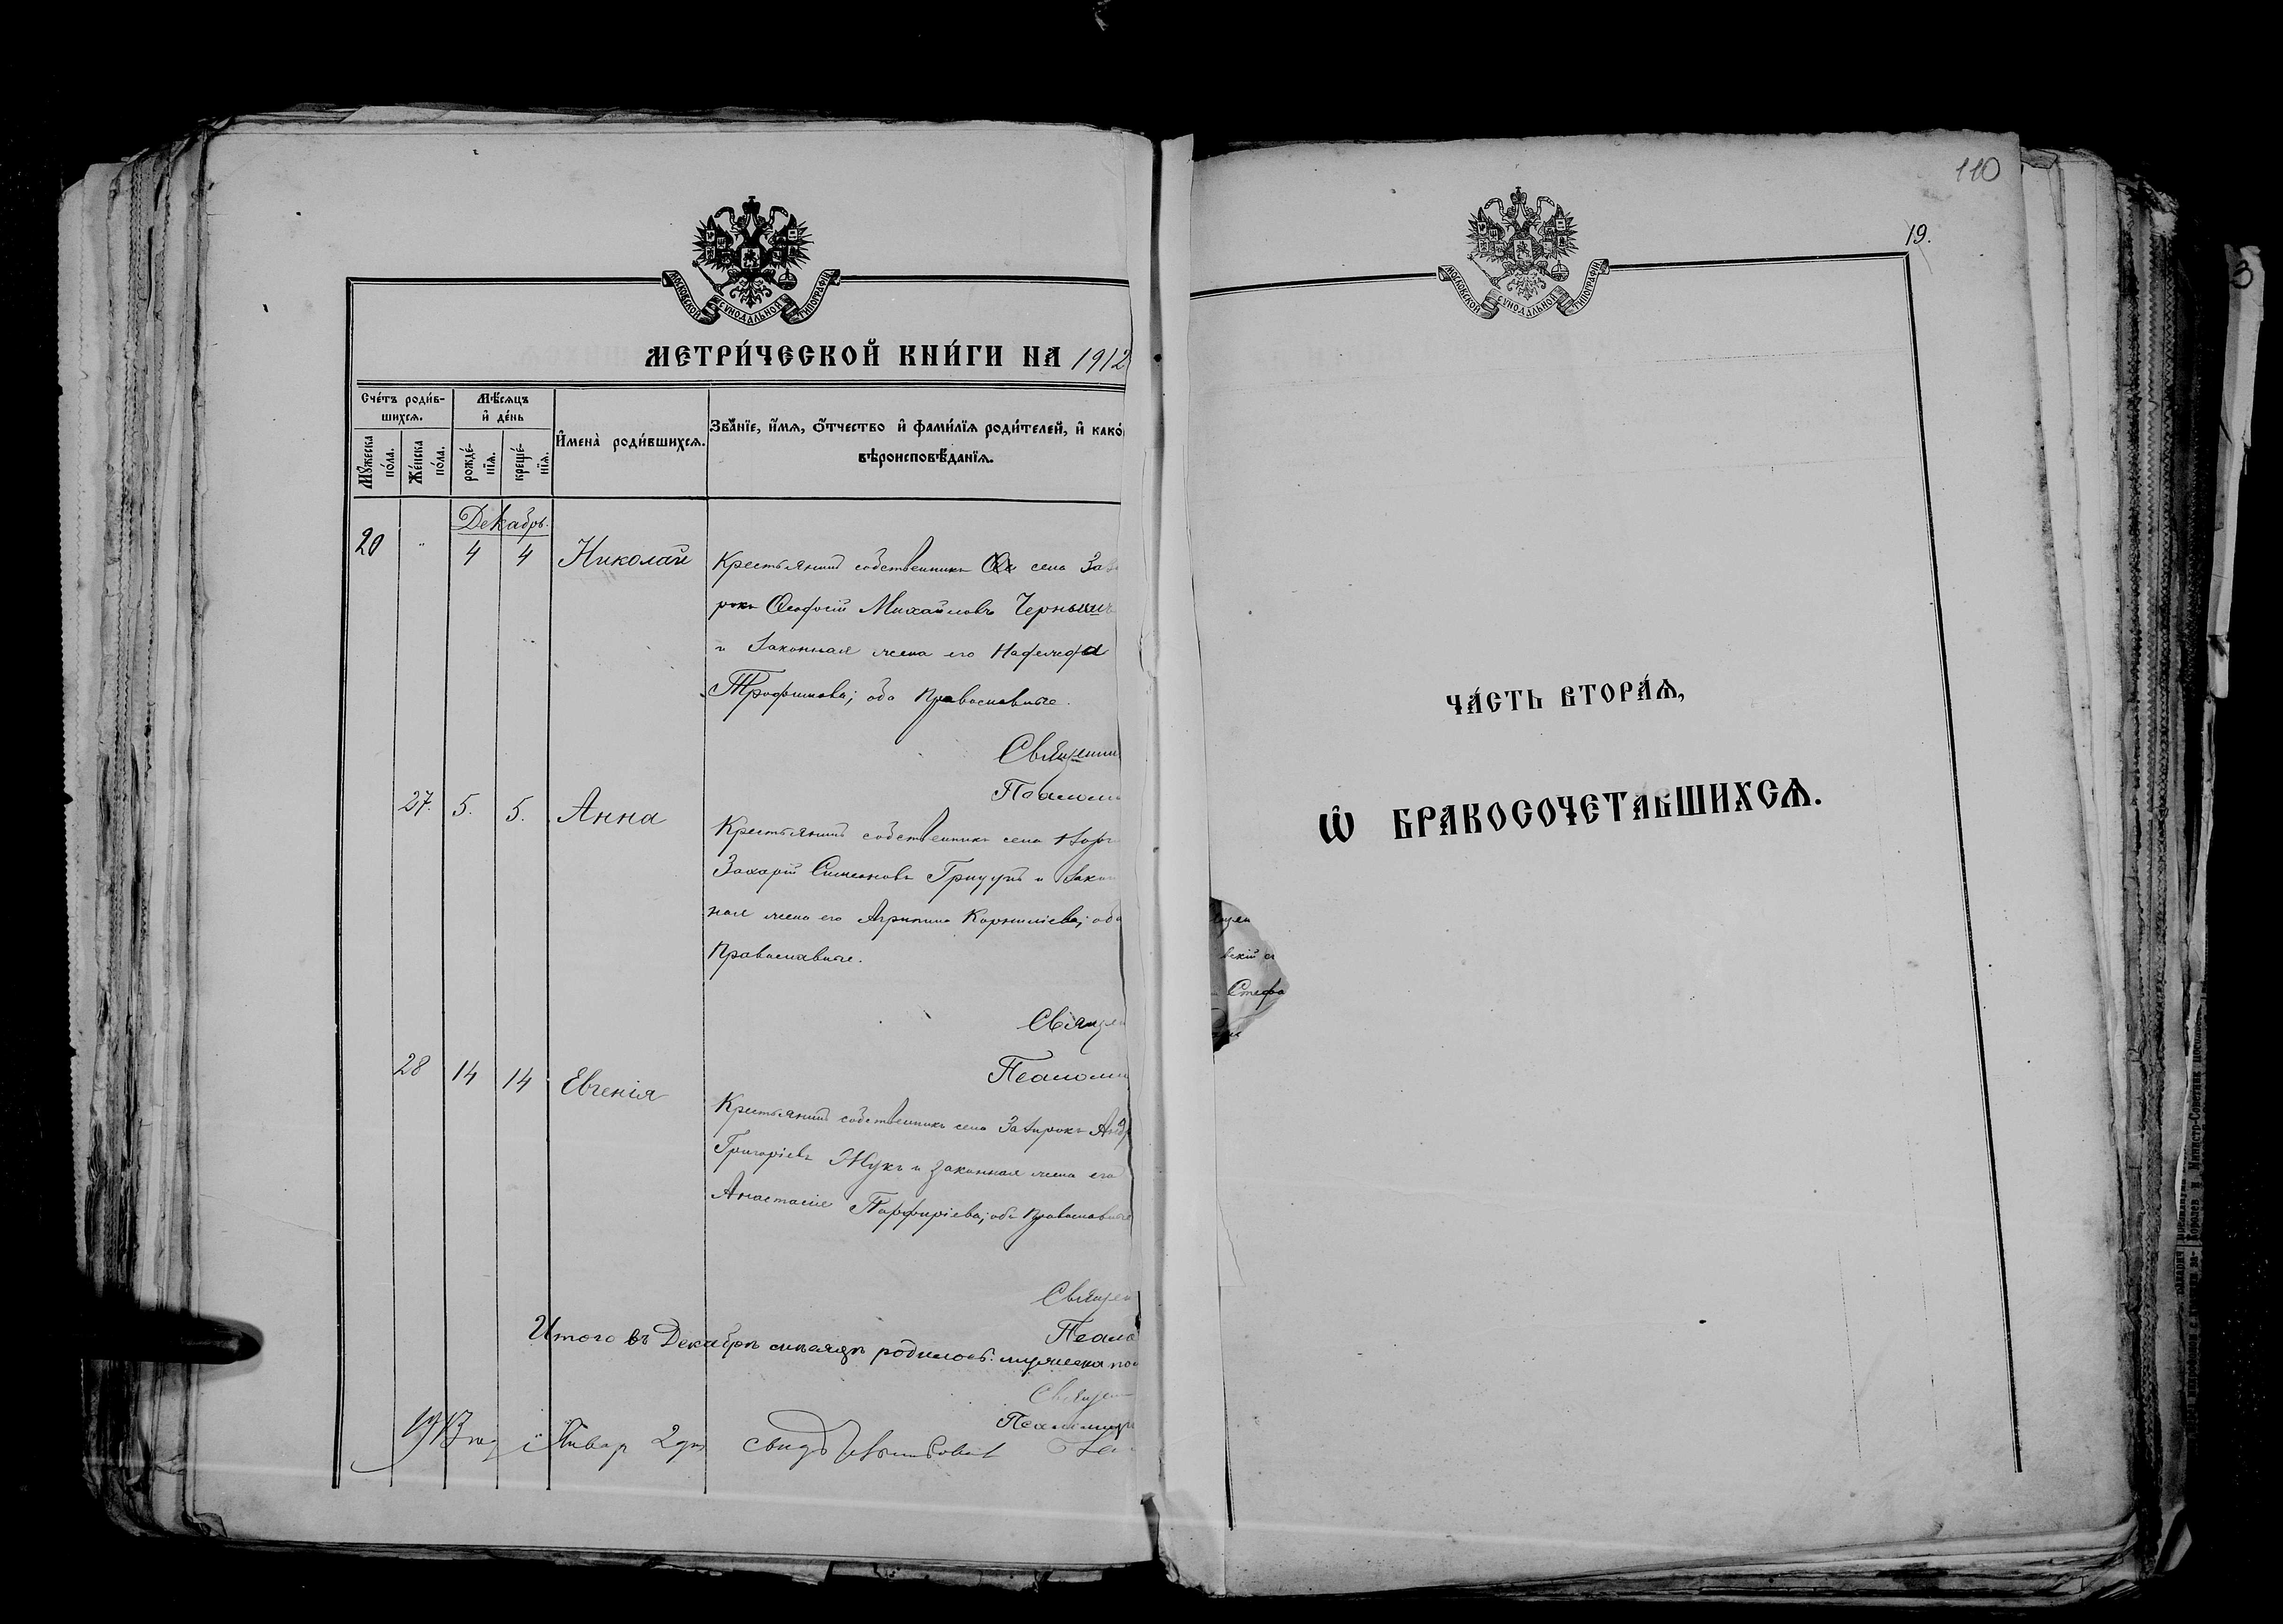 110
19.
МОСКОВСКОЙ СУНОДАЛЬНОЙ ТИПОГРАФІИ
МЕТРИ́ЧЕСКОЙ КНИ́ГИ НА 1912
Сче́тъ роди́в-
шихся.
Мѣ́сяцъ
и҆ де́нь
Му́жеска
по́ла.
Же́нска
по́ла.
рожде́-
нїя.
креще́-
нїя.
И҆мена̀ роди́вшихся.
Зва́нїе, и҆́мя, ѻ҆́тчество и҆ фами́лїя роди́телей, и҆ како́
вѣроисповѣ́данїя.
Декабрь.
20 " 4 4 Николай
Крестьянинъ собственникъ села
Михайловъ
и законная жена его
Трофимова; оба Православные.
Священни
Псалом
27. 5. 5. Анна
Крестьянинъ собственникъ села
Захарій Симеоновъ Грицукъ и закон
ная жена его Агрипина Корниліева; оба
Православные.
Священ
Псалом
28 14 14 Евгенія
Крестьянинъ собственникъ села Андр
Григорьевъ Жукъ и законная жена его
Анастасія Порфиріева; оба Православные
Священ
Псало
Итого въ Декабрѣ мѣсяцѣ родилось: мужеска по
Священ
Псаломщи
1913 год Январ 2 дня
МОСКОВСКОЙ СУНОДАЛЬНОЙ ТИПОГРАФІИ
ЧА́СТЬ ВТОРА́Ѧ,
Ѡ БРАКОСОЧЕТА́ВШИХСѦ.
Стефа